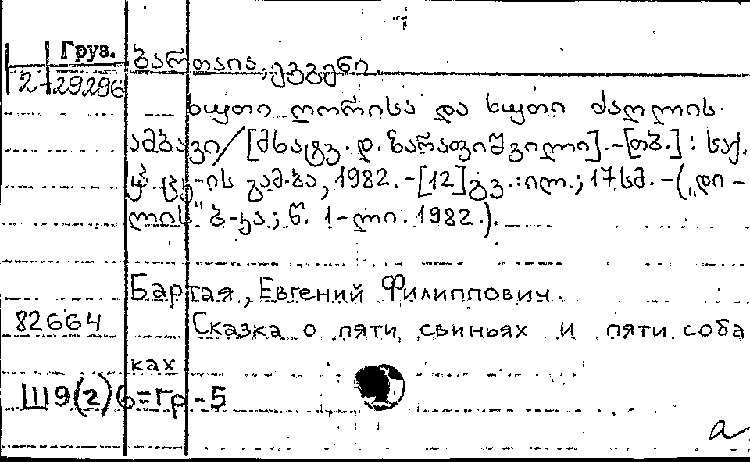 Груз. ბართაია, ევგენი.
2-29296
ხუთი ღორისა და ხუთი ძაღლის
ამბავი/[მხატვ. დ. ზარაფიშვილი].-[თბ.]: საქ.
კპ ცკ-ის გამ-ბა, 1982.-[12]გვ.:ილ.; 17სმ.-(„დი-
ლის" ბ-კა; წ. 1-ლი. 1982.).
Бартая, Евгений Филиппович.
82664 Сказка о пяти свиньях и пяти соба
ках
Ш9(2)6=Гр-5